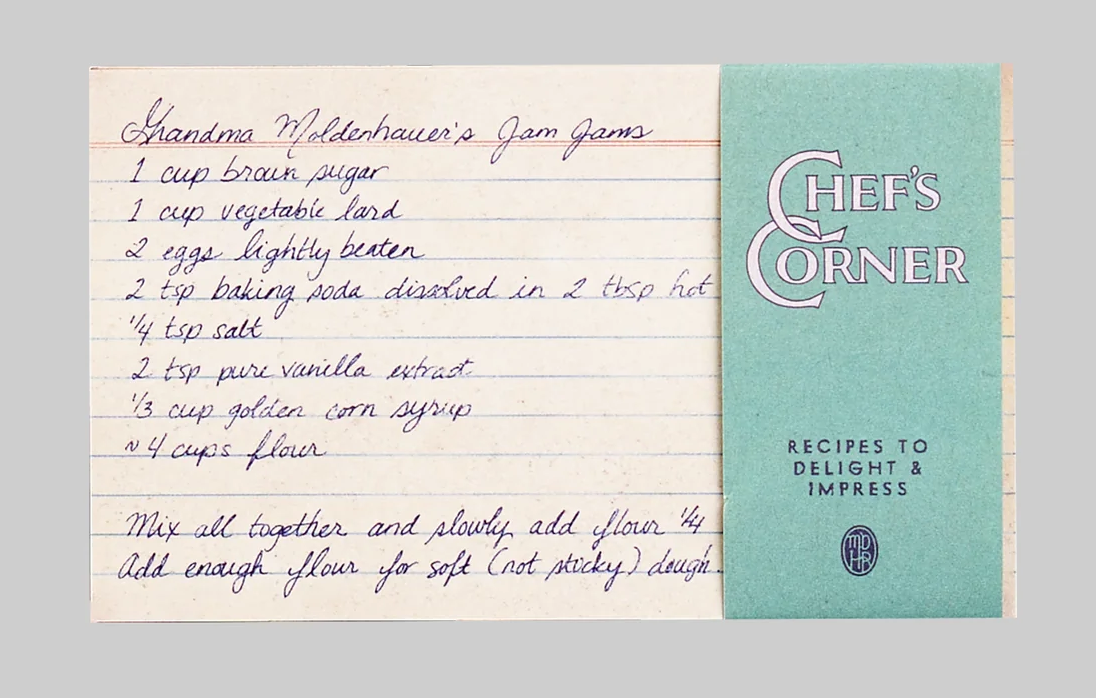 Grandma Moldenhauer's Jam Jams
1 cup brown sugar
1 cup vegetable lard
2 eggs lightly beaten
2 tsp baking soda dissolved in 2 tbsp hot
1/4 tsp salt
2 tsp pure vanilla extract
1/3 cup golden corn syrup
~ 4 cups flour
Mix all together and slowly add flour 1/4
Add enough flour for soft (not sticky) dough.
CHEF'S
CORNER
RECIPES TO
DELIGHT &
IMPRESS